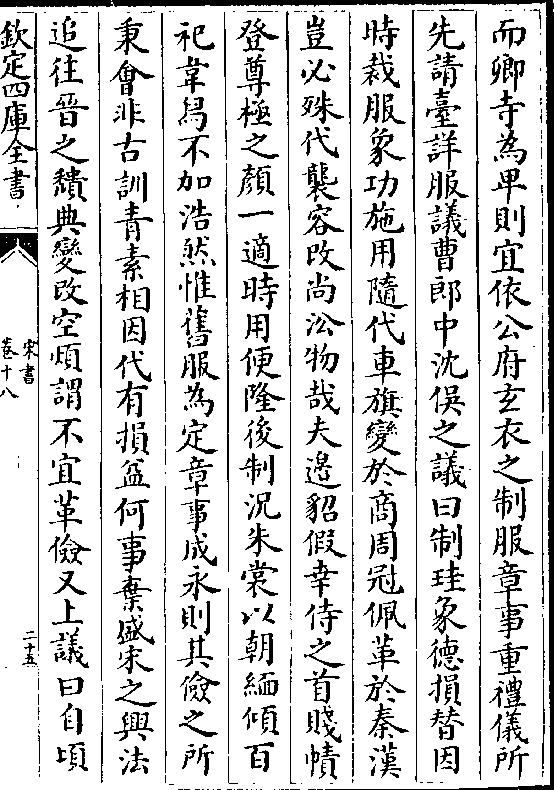 而卿寺為卑則宜依公府玄衣之制服章事重禮儀所
先請臺詳服議曹郎中沈俁之議曰制珪象德損替因
時裁服象功施用隨代車旗變於商周冠佩革於秦漢
豈必殊代襲容改尚沿物哉夫邉貂假幸侍之首賤幘
登尊極之顏一適時用便隆後制況朱裳以朝緬傾百
祀韋舄不加浩然惟舊服為定章事成永則其儉之所
秉會非古訓青素相因代有損益何事棄盛宋之興法
追往晉之穨典變改空煩謂不宜革儉又上議曰自頃
欽定四庫全書
宋書
卷十八
二十五